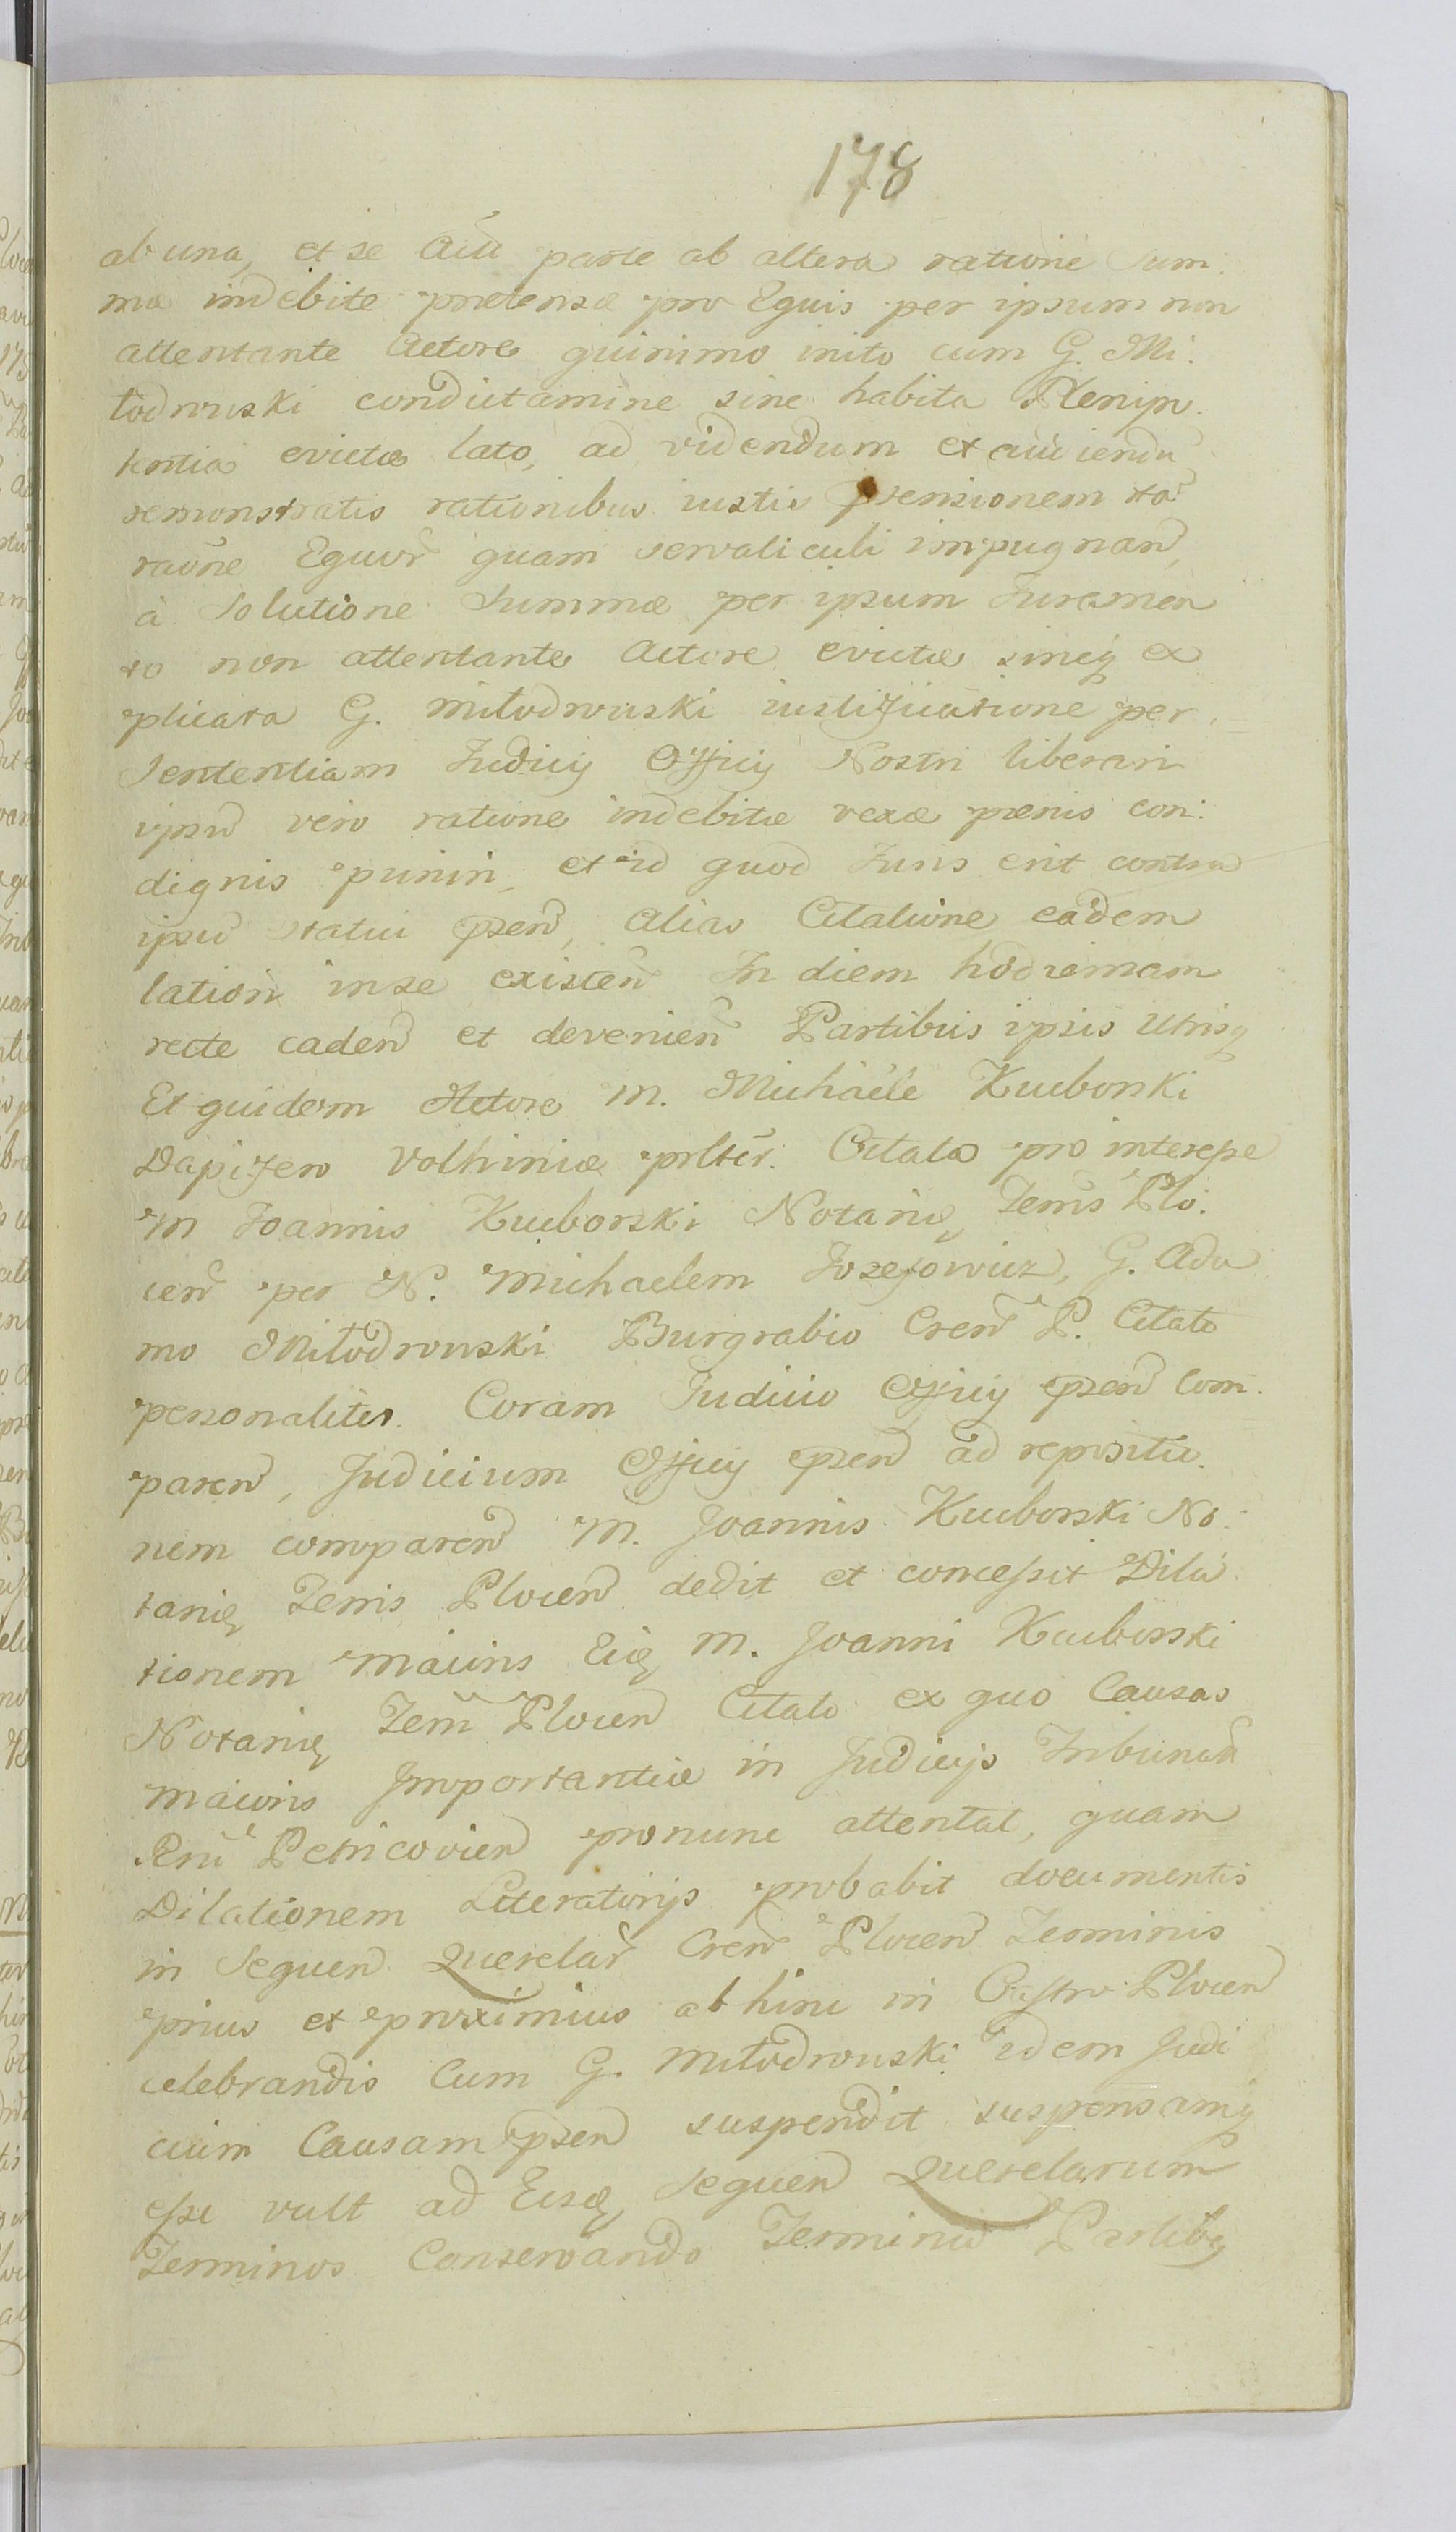 178
ab una, et se Actū parte ab altera ratione Sum:
mæ indebite prætensæ pro Equis per ipsum non
attentante Actore quinimo inito cum G. Mi:
łodrowski condictamine sine habita Plenip.
tentia evictæ lato, ad videndum et audiendū
remonstratis rationibus iustis psensionem ta
raōne Equor̄ quam servaliculi impugnan̄,
à Solutione Summæ per ipsum Juramen
to non attentante Actore evictæ sineq ex
plicata G. Miłodrowski iustificatione per
Sententiam Judicij Officij Nostri liberari
ipsū vero ratione indebitæ vexæ pœnis con:
dignis puniri, et id quod Juris erit contra
ipsū statui psen̄, alias Citatione eadem
latiōn in se existen̄ In diem hodiernam
recte caden̄ et devenien̄ Partibus ipsis Utrisq
Et quidem Actore M. Michaële Kuuborski
Dapifero Volhiniæ psltēr. Citato pro interesse
M Joannis Kuuborski Notarij Terrīs Plo:
cen̄ per N. Michaelem Jozefowicz, G. Ada
mo Miłodrowski Burgrabio Cren̄ P. Citato
personaliter. Coram Judicio Officij psen̄ Com:
paren̄, Judicium Officij psen̄ ad repositio:
nem comparen̄ M. Joannis Kuuborski No:
tarij Terris Plocen̄ dedit et concessit Dila
tionem maioris Eiq M. Joanni Kuuborski
Notarij Terrīs Plocen̄ Citato ex quo Causas
maioris Importantiæ in Judicijs Tribunalī
Rnī Petricovien̄ pronunc attentat, quam
Dilationem Literatorijs probabit documentis
in Sequen̄ Querelar̄ Cren̄ Plocen̄ Terminis
prius et proximius abhinc in Castro Plocen̄
celebrandis Cum G. Miłodrowski idem Judi
cium Causam psen̄ suspendit suspensamq
esse vult ad Eosq Sequen̄ Querelarum
Terminos Conservando Terminū Partibq